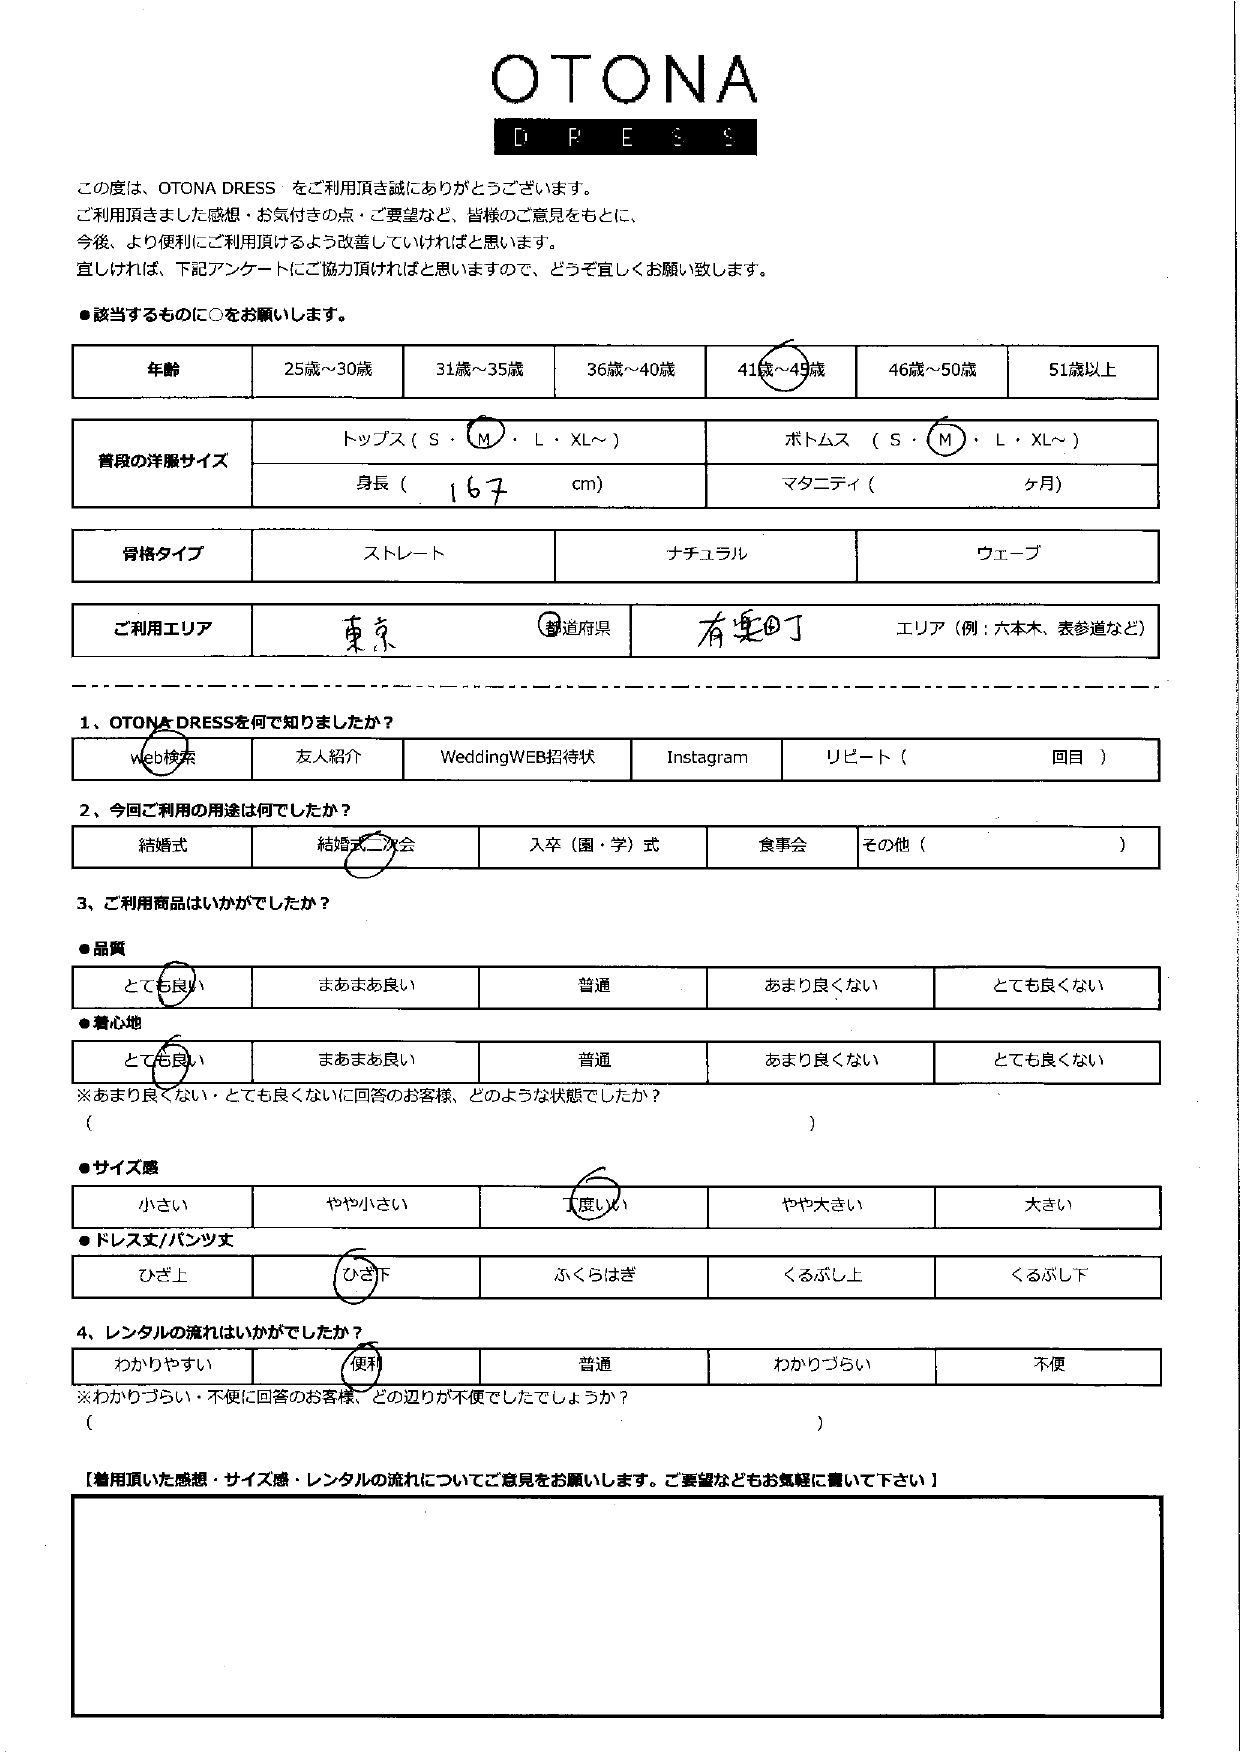 OTONA
DRESS
この度は、OTONA DRESS をご利用頂き誠にありがとうございます。
ご利用頂きました感想・お気付きの点・ご要望など、皆様のご意見をもとに、
今後、より便利にご利用頂けるよう改善していければと思います。
宜しければ、下記アンケートにご協力頂ければと思いますので、どうぞ宜しくお願い致します。
●該当するものに○をお願いします。
年齢 25歳～30歳 31歳～35歳 36歳～40歳 41歳～45歳 46歳～50歳 51歳以上
普段の洋服サイズ トップス ( S ・ M ・ L ・ XL～ ) ボトムス ( S ・ M ・ L ・ XL～ )
身長 ( 167 cm) マタニティ ( ヶ月)
骨格タイプ ストレート ナチュラル ウェーブ
ご利用エリア 東京 都道府県 有楽町 エリア（例：六本木、表参道など）
1、OTONA DRESSを何で知りましたか？
web検索 友人紹介 WeddingWEB招待状 Instagram リピート（ 回目 ）
2、今回ご利用の用途は何でしたか？
結婚式 結婚式二次会 入卒（園・学）式 食事会 その他（ ）
3、ご利用商品はいかがでしたか？
●品質
とても良い まあまあ良い 普通 あまり良くない とても良くない
●着心地
とても良い まあまあ良い 普通 あまり良くない とても良くない
※あまり良くない・とても良くないに回答のお客様、どのような状態でしたか？
（ ）
●サイズ感
小さい やや小さい 丁度いい やや大きい 大きい
●ドレス丈/パンツ丈
ひざ上 ひざ下 ふくらはぎ くるぶし上 くるぶし下
4、レンタルの流れはいかがでしたか？
わかりやすい 便利 普通 わかりづらい 不便
※わかりづらい・不便に回答のお客様、どの辺りが不便でしたでしょうか？
（ ）
【着用頂いた感想・サイズ感・レンタルの流れについてご意見をお願いします。ご要望などもお気軽に書いて下さい】